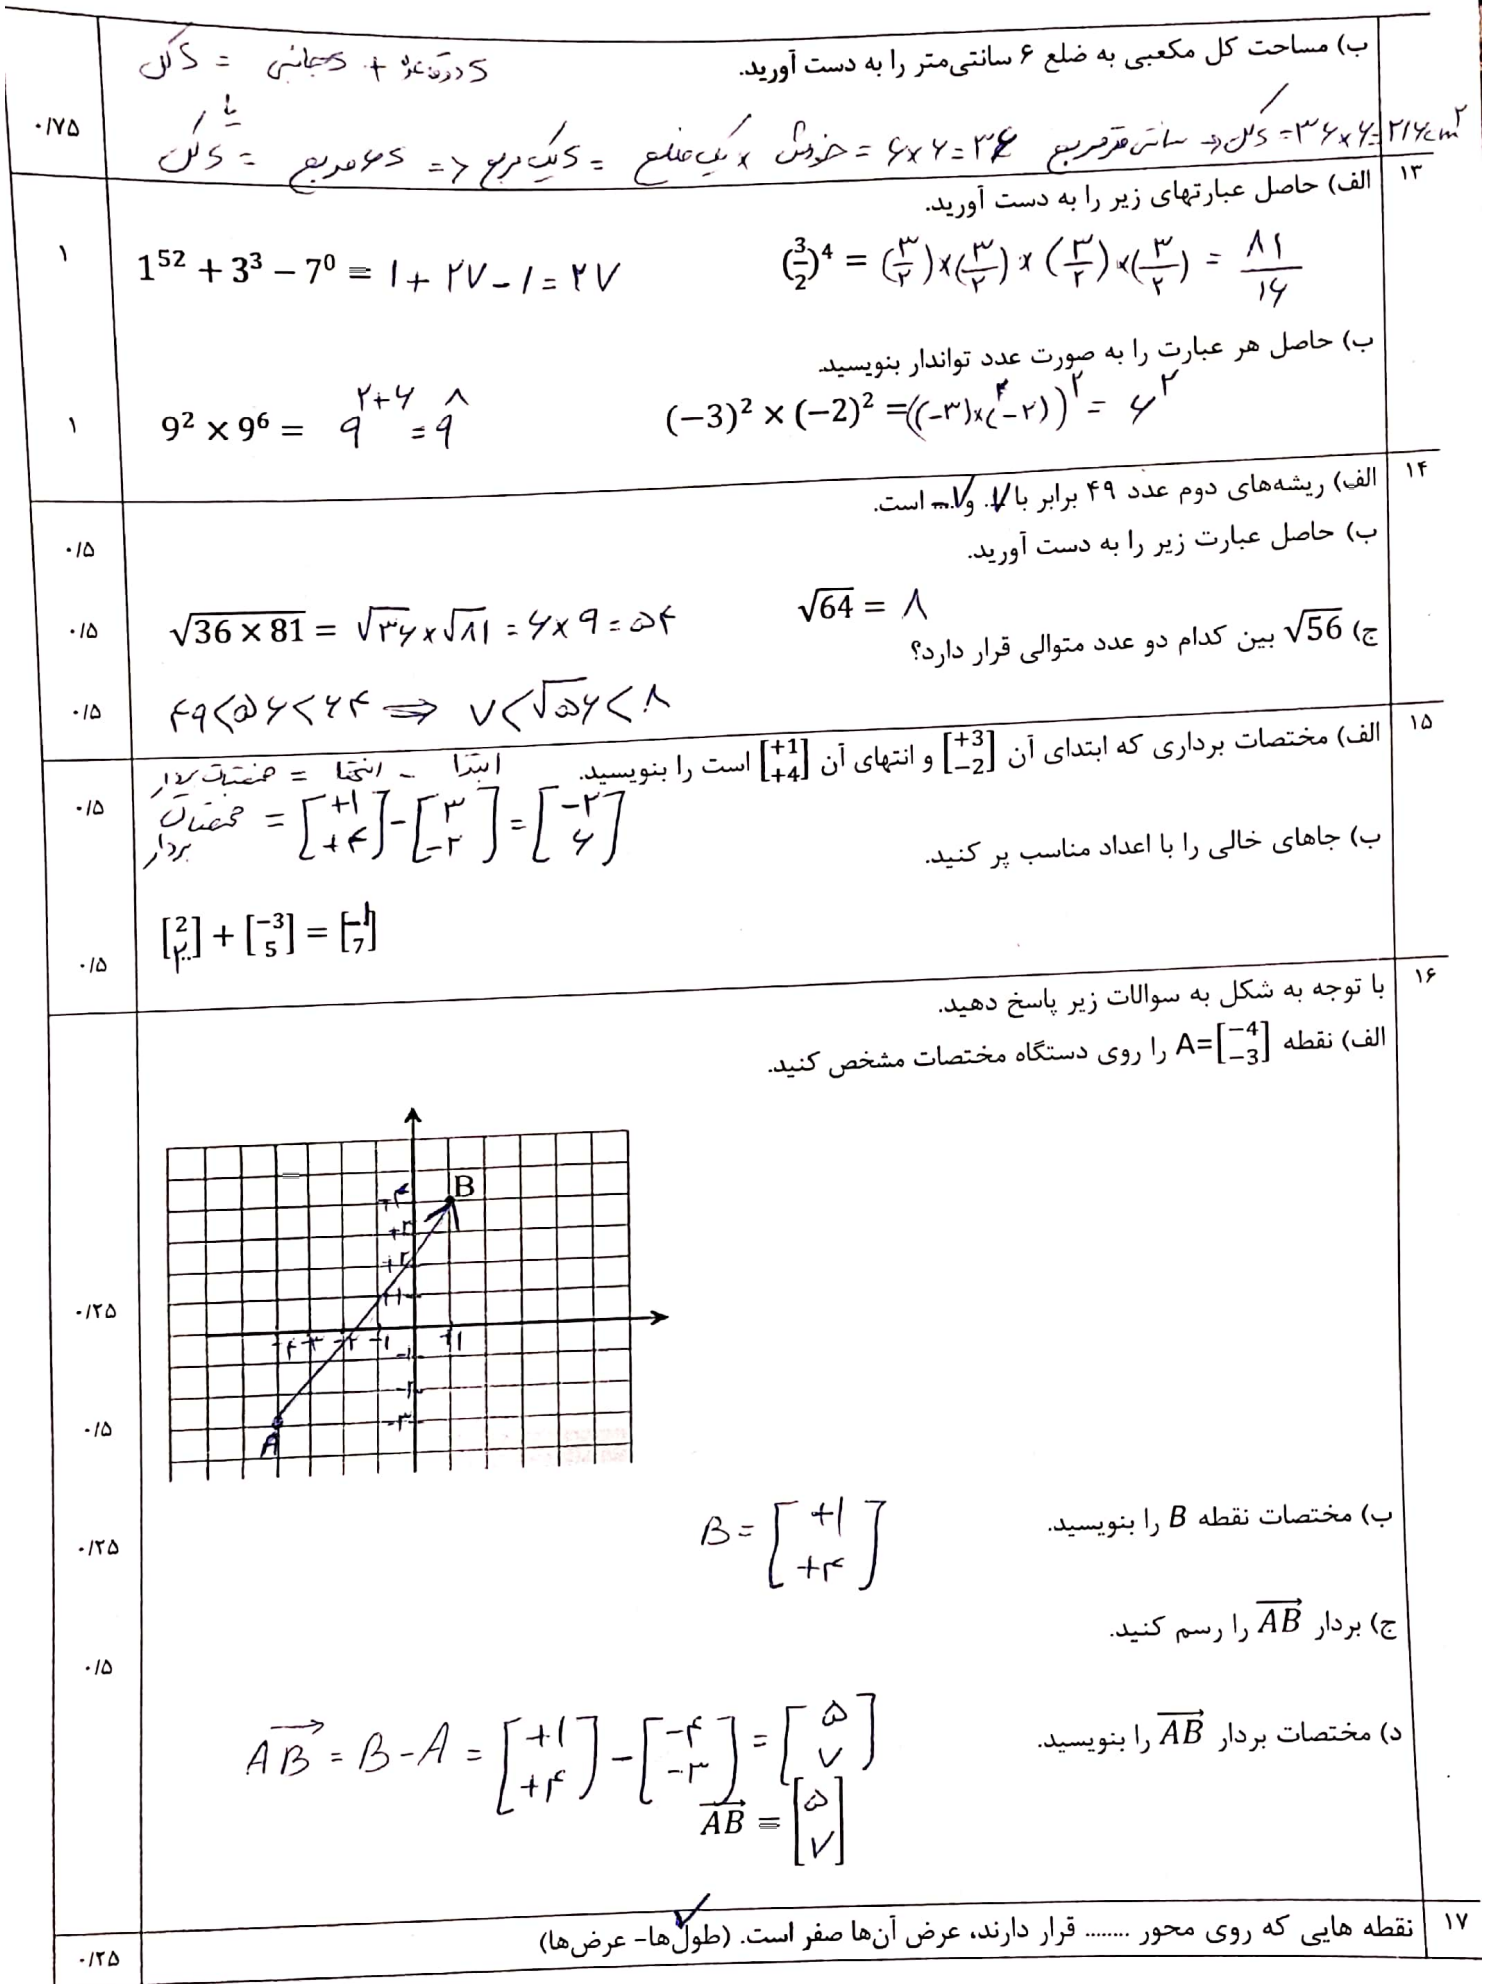 ب) مساحت کل مکعبی به ضلع ۶ سانتی‌متر را به دست آورید.
S کل = S جانبی + S دو قاعده
۰/۷۵
یا
S کل = ۶ S مربع => S یک مربع = یک ضلع × خودش = ۶×۶=۳۶ سانتی متر مربع => S کل = ۳۶×۶=۲۱۶cm²
۱۳
الف) حاصل عبارتهای زیر را به دست آورید.
۱
1⁵² + 3³ − 7⁰ = ۱+۲۷-۱=۲۷
(3/2)⁴ = (۳/۲)×(۳/۲)×(۳/۲)×(۳/۲) = ۸۱/۱۶
ب) حاصل هر عبارت را به صورت عدد تواندار بنویسید.
۱
9² × 9⁶ = ۹²⁺⁶ = ۹⁸
(−3)² × (−2)² = ((-۳)×(-۲))² = ۶²
۱۴
الف) ریشه‌های دوم عدد ۴۹ برابر با ۷ و -۷ است.
۰/۵
ب) حاصل عبارت زیر را به دست آورید.
۰/۵
√36 × 81 = √۳۶×√۸۱ = ۶×۹=۵۴
√64 = ۸
ج) √56 بین کدام دو عدد متوالی قرار دارد؟
۰/۵
۴۹<۵۶<۶۴ ⇒ ۷<√۵۶<۸
۱۵
الف) مختصات برداری که ابتدای آن [+3 −2] و انتهای آن [+1 +4] است را بنویسید.
ابتدا - انتها = مختصات بردار
۰/۵
مختصات بردار = [+۱ +۴] - [۳ -۲] = [-۲ ۶]
ب) جاهای خالی را با اعداد مناسب پر کنید.
۰/۵
[2 ۲] + [−3 5] = [-۱ 7]
۱۶
با توجه به شکل به سوالات زیر پاسخ دهید.
الف) نقطه A=[−4 −3] را روی دستگاه مختصات مشخص کنید.
B
+۴
+۳
+۲
+۱
-۴ -۳ -۲ -۱ +۱
-۱
-۲
-۳
A
۰/۲۵
۰/۵
ب) مختصات نقطه B را بنویسید.
B = [+۱ +۴]
۰/۲۵
ج) بردار AB را رسم کنید.
۰/۵
د) مختصات بردار AB را بنویسید.
AB = B-A = [+۱ +۴] - [-۴ -۳] = [۵ ۷]
AB = [۵ ۷]
۱۷
نقطه هایی که روی محور ........ قرار دارند، عرض آن‌ها صفر است. (طول‌ها- عرض‌ها)
✓
۰/۲۵